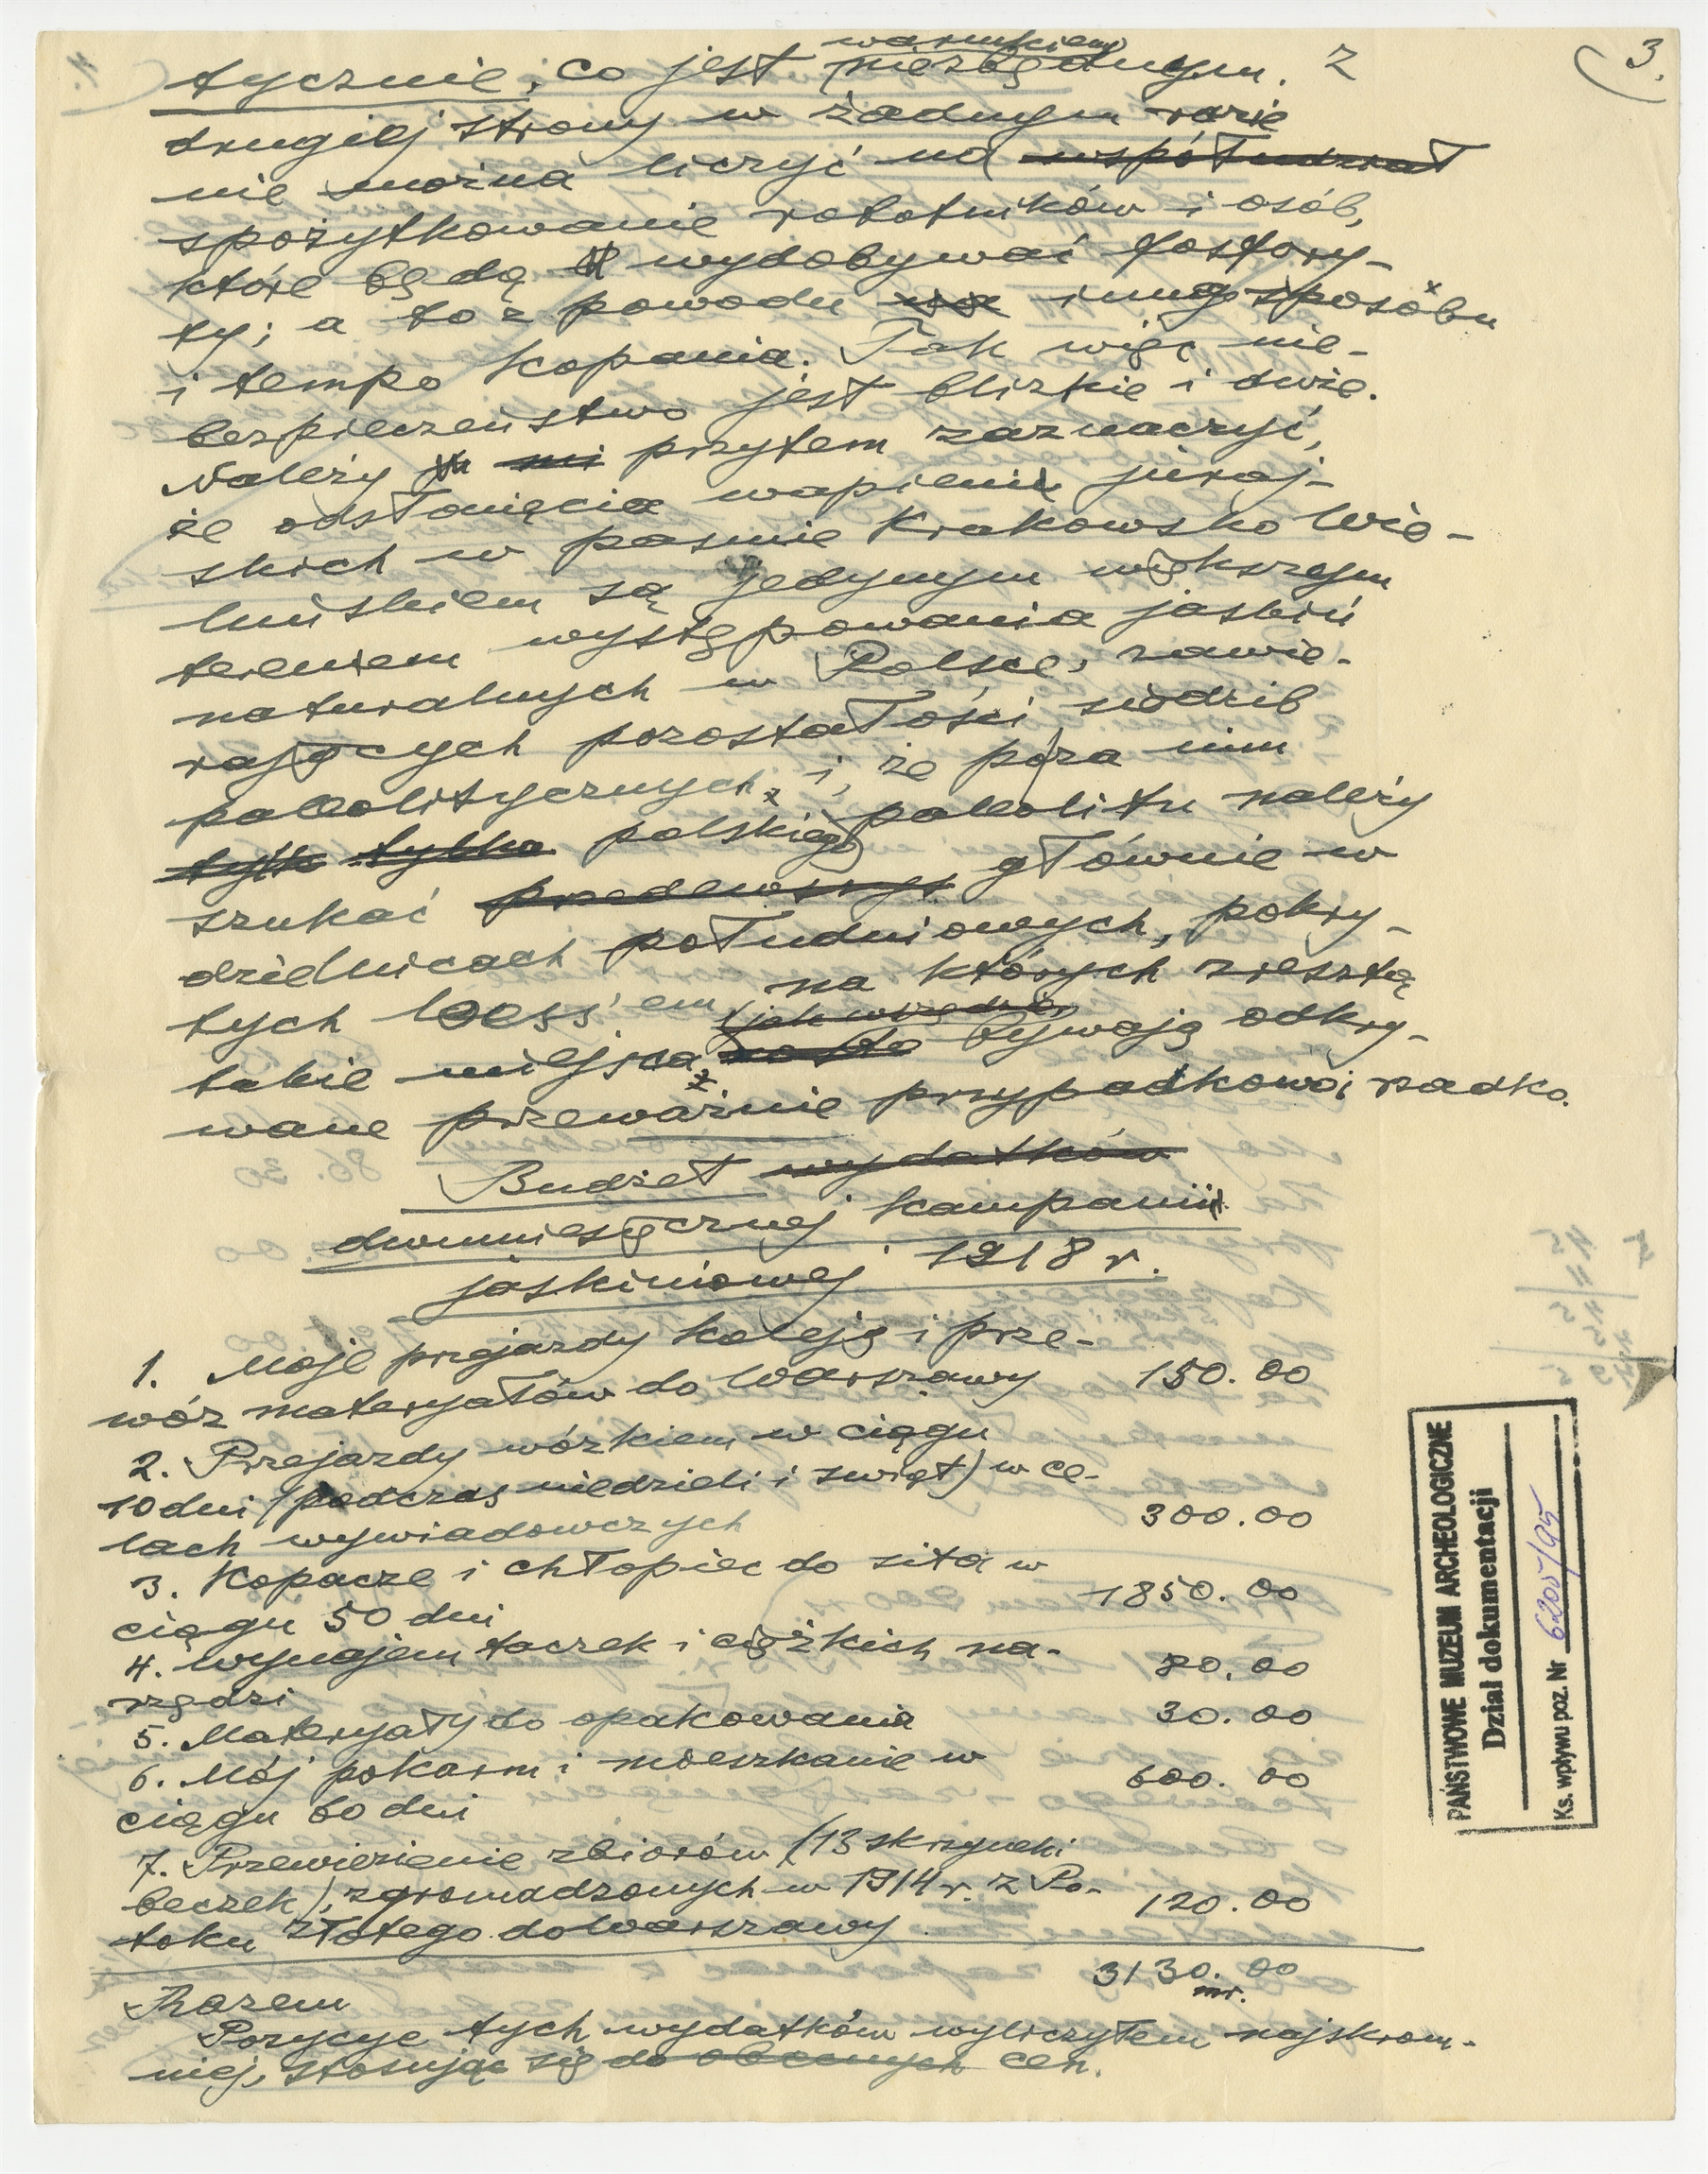 3.
warunkiem
tycznie, co jest niezbędnym. Z
drugiej strony w żadnym razie
nie można liczyć na współudział
spożytkowanie robotników i osób,
które będą wydobywać fosfory-
ty; a to z powodu inneg sposobu
i tempo kopania. Tak więc nie-
bezpieczeństwo jest blizkie i duże.
Należy przytem zaznaczyć,
że odsłonięcia wapieni juraj-
skich w pasmie Krakowsko Wie-
luńskiem są jedynym większym
terenem występowania jaskiń
naturalnych w Polsce, zawie-
rających pozostałości siedzib
paleolitycznych, i, że poza nim
tylko polskiego paleolitu należy
szukać przedewszys głównie w
dzielnicach południowych, pokry-
tych loess'em, na których zresztą
(jak wszędzie)
takie miejsca bywają odkry-
wane przeważnie przypadkowo i rzadko.
Budżet wydatków
dwumiesięcznej kampanii
jaskiniowej 1918 r.
1. Moje przejazdy koleją i prze-
wóz materjałów do Warszawy 150.00
2. Przejazdy wózkiem w ciągu
10 dni (podczas niedzieli i świąt) w ce-
lach wywiadowczych 300.00
3. Kopacze i chłopiec do sita w
ciągu 50 dni 1850.00
4. Wynajem taczek i ciężkich na-
rzędzi 80.00
5. Materjały do opakowania 30.00
6. Mój pokarm i mieszkanie w
ciągu 60 dni 600.00
7. Przewiezienie zbiorów (13 skrzynek i
beczek), zgromadzonych w 1914 r. z Po-
toku Złotego do Warszawy 120.00
Razem 3130.00
mr.
Pozycye tych wydatków wyliczyłem najskrom-
niej, stosując się do obecnych cen.
PAŃSTWOWE MUZEUM ARCHEOLOGICZNE
Dział dokumentacji
Ks. wpływu poz. Nr 6205/95